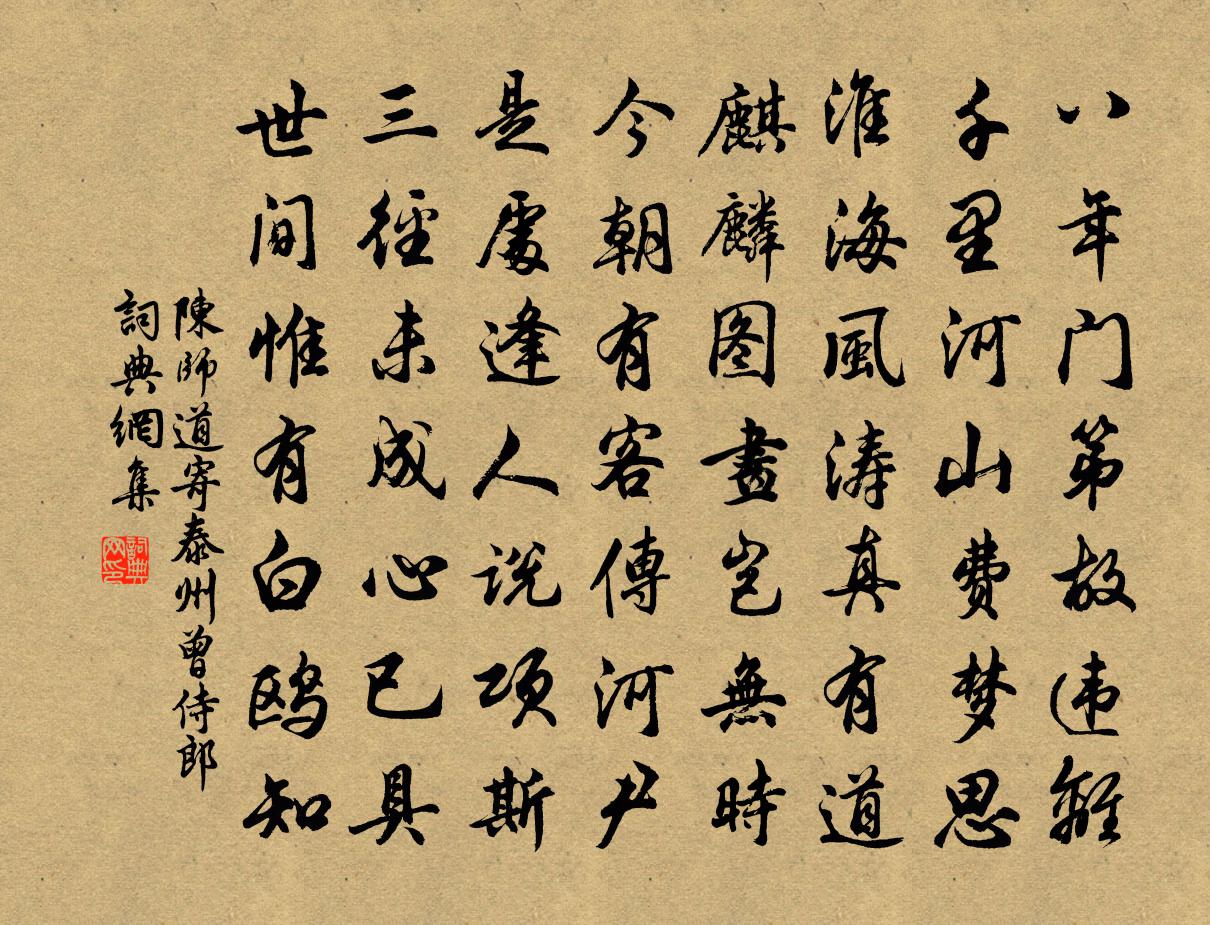 八年门第故违離
千里河山費梦思
淮海風涛真有道
麒麟图畫岂無時
今朝有客傳河尹
是處逢人说项斯
三徑未成心已具
世间惟有白鸥知
陳師道寄泰州曾侍郎
詞典網集
詞典网印